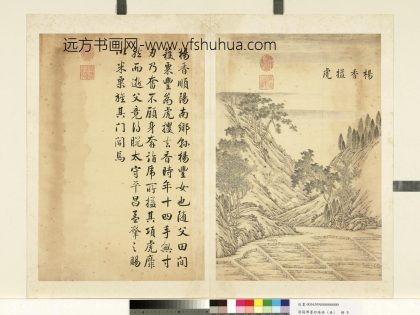 远方书画网-www.yfshuhua.com
楊香搤虎
楊香順陽南鄉縣楊豐女也隨父田間
穫粟豐為虎搜去香時年十四手無寸
刃乃奮不顧身奔詣虎所搤其項虎靡
然而逝父竟得脫太守平昌孟肇之賜
以米粟旌其門閭焉